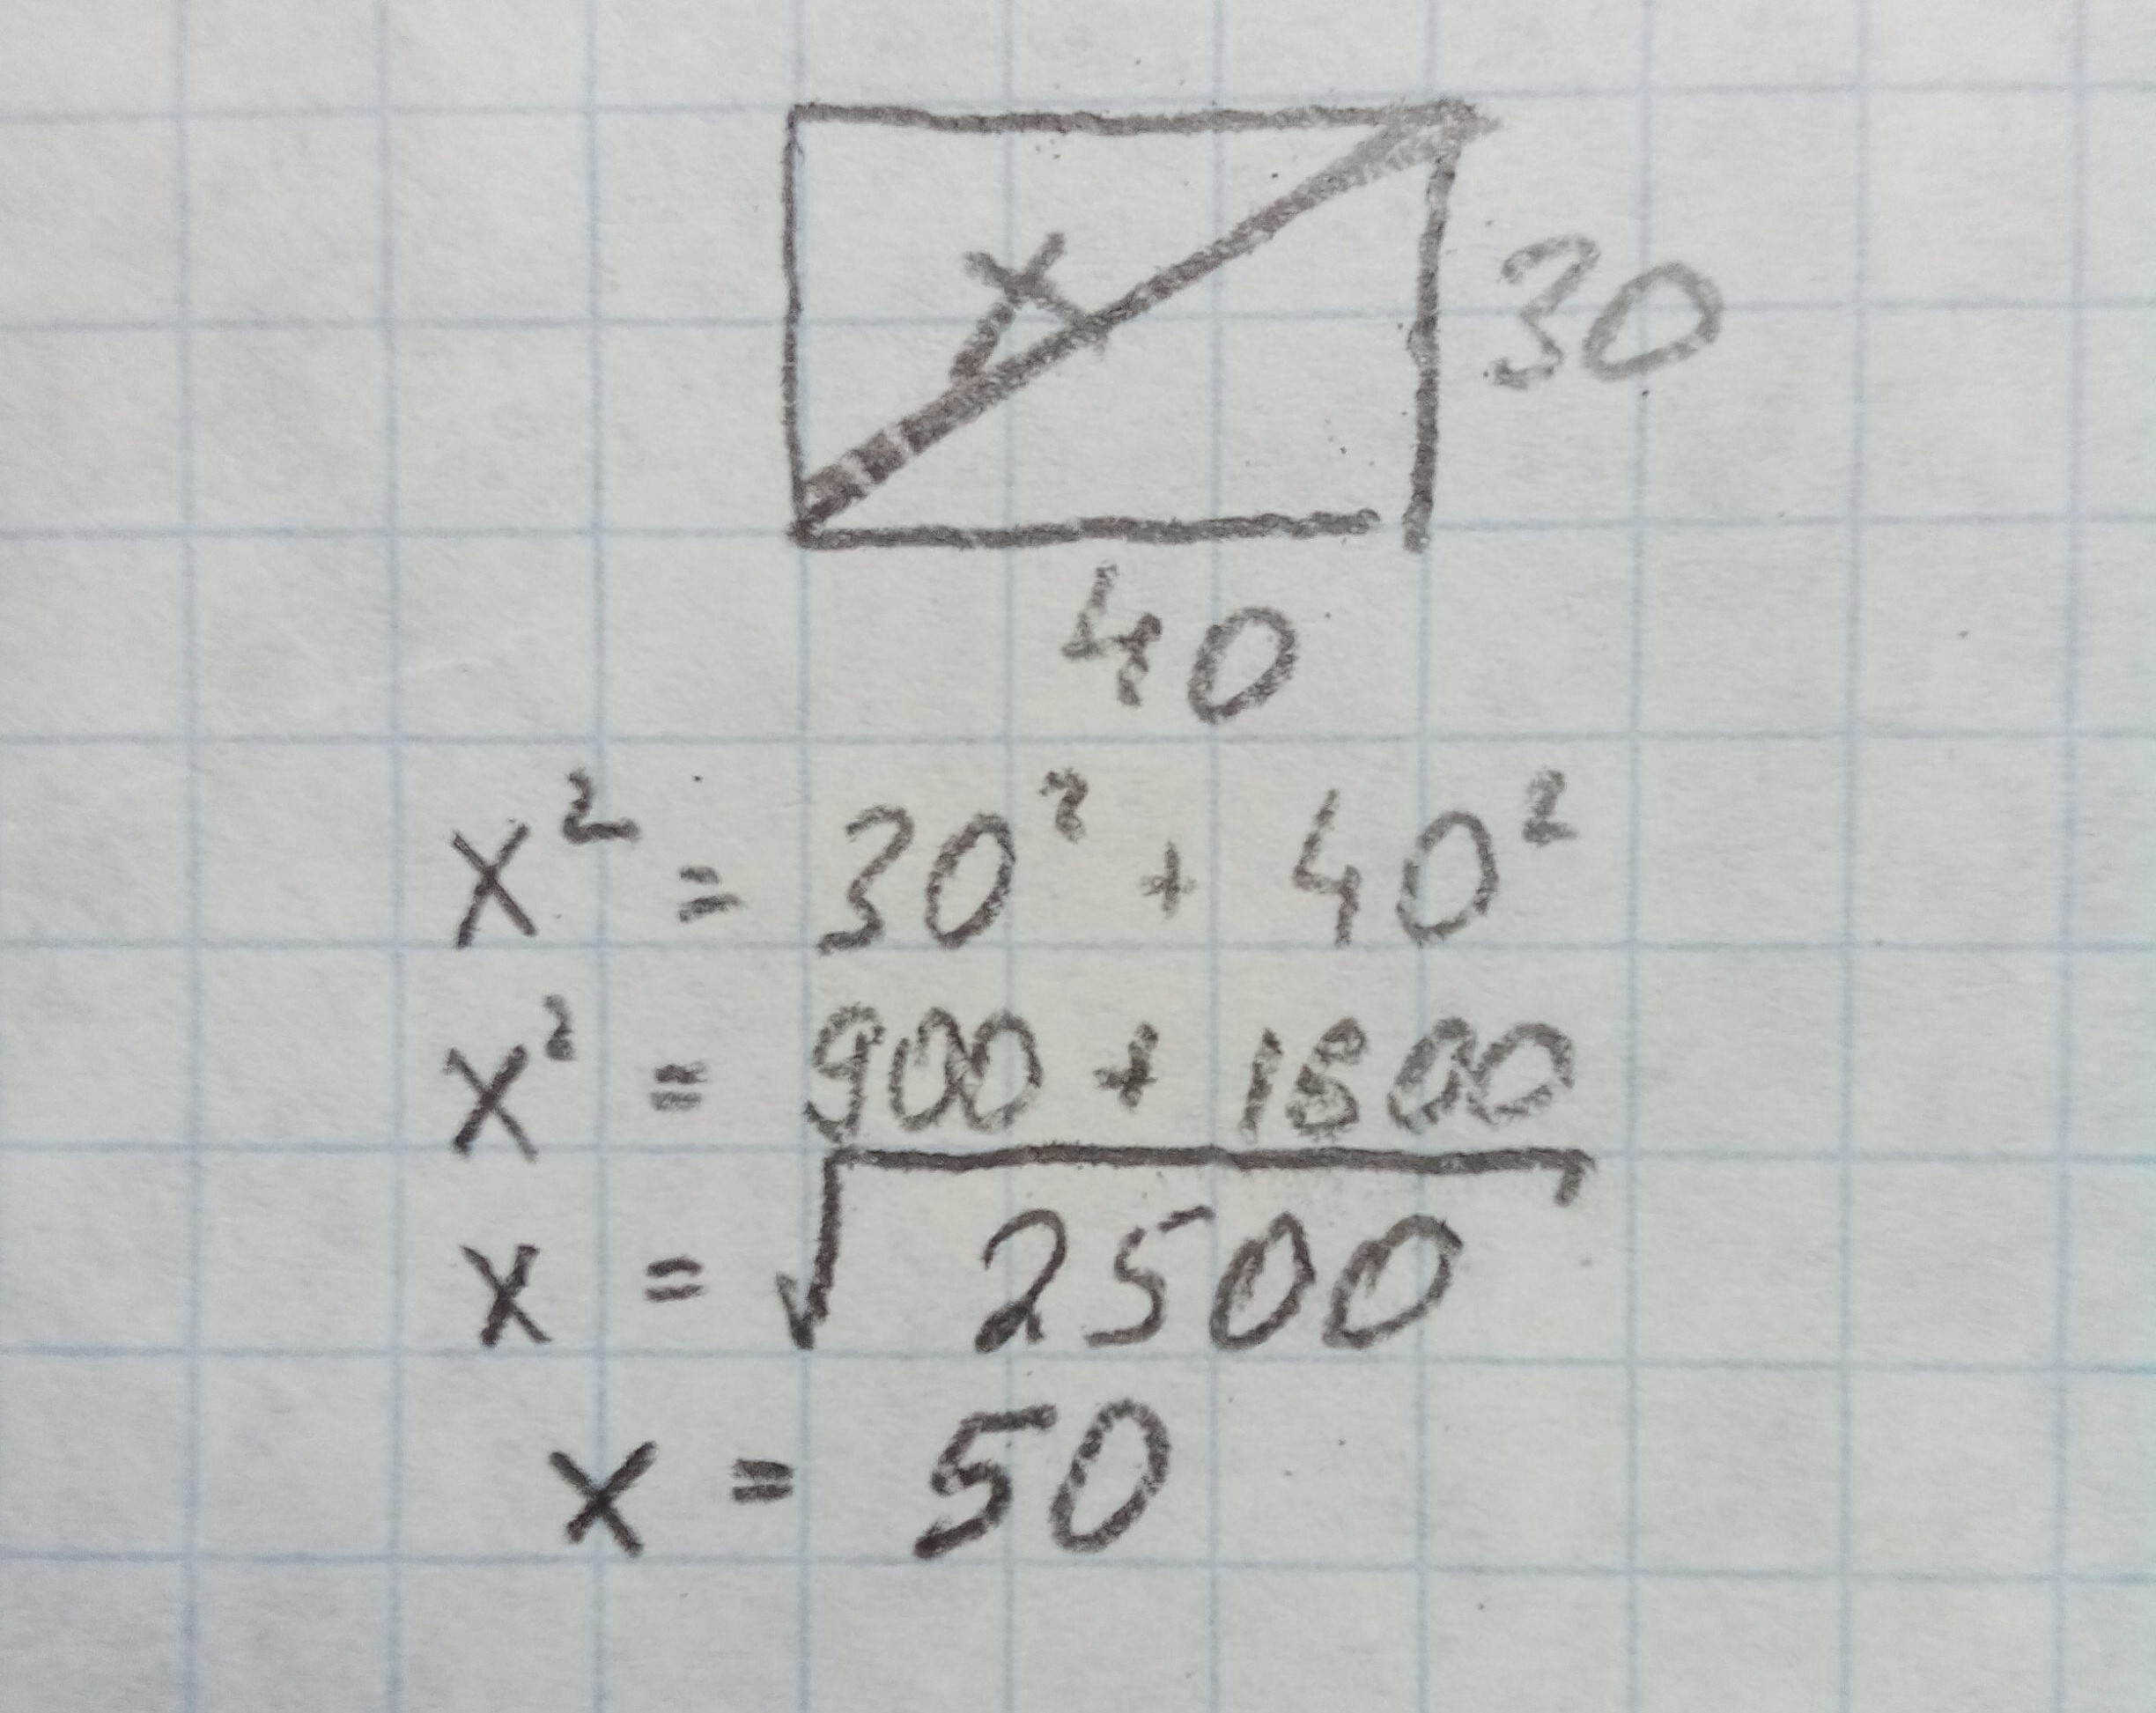 x
30
40
x² = 30² + 40²
x² = 900 + 1600
x = √2500
x = 50